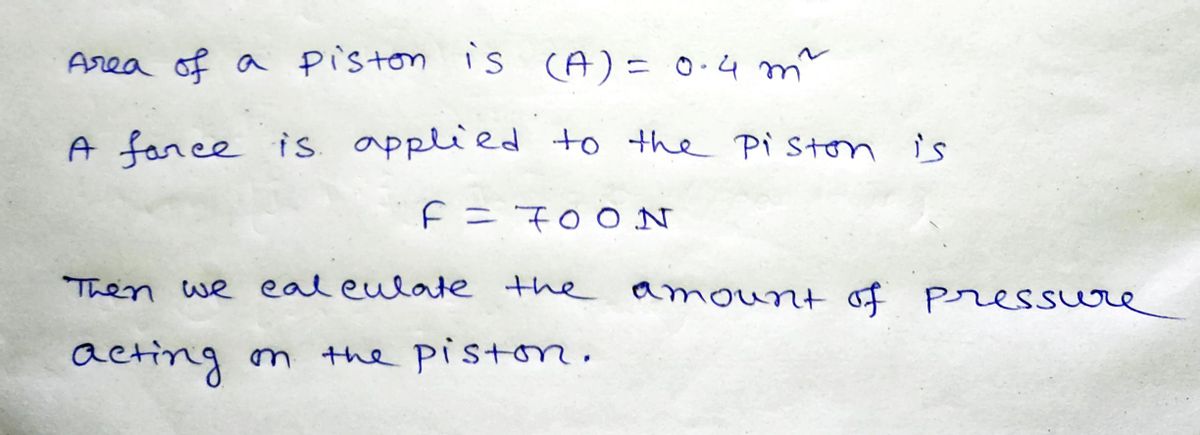 Area of a piston is (A) = 0.4 m²
A force is applied to the piston is
F = 700N
Then we calculate the amount of pressure
acting on the piston.